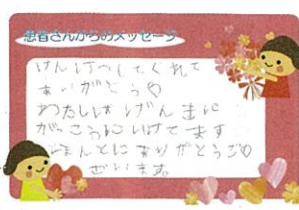 患者さんからのメッセージ
けんけつしてくれて
ありがとう
わたしはげんきに
がっこうにいけてます
ほんとにありがとうご
ざいます。